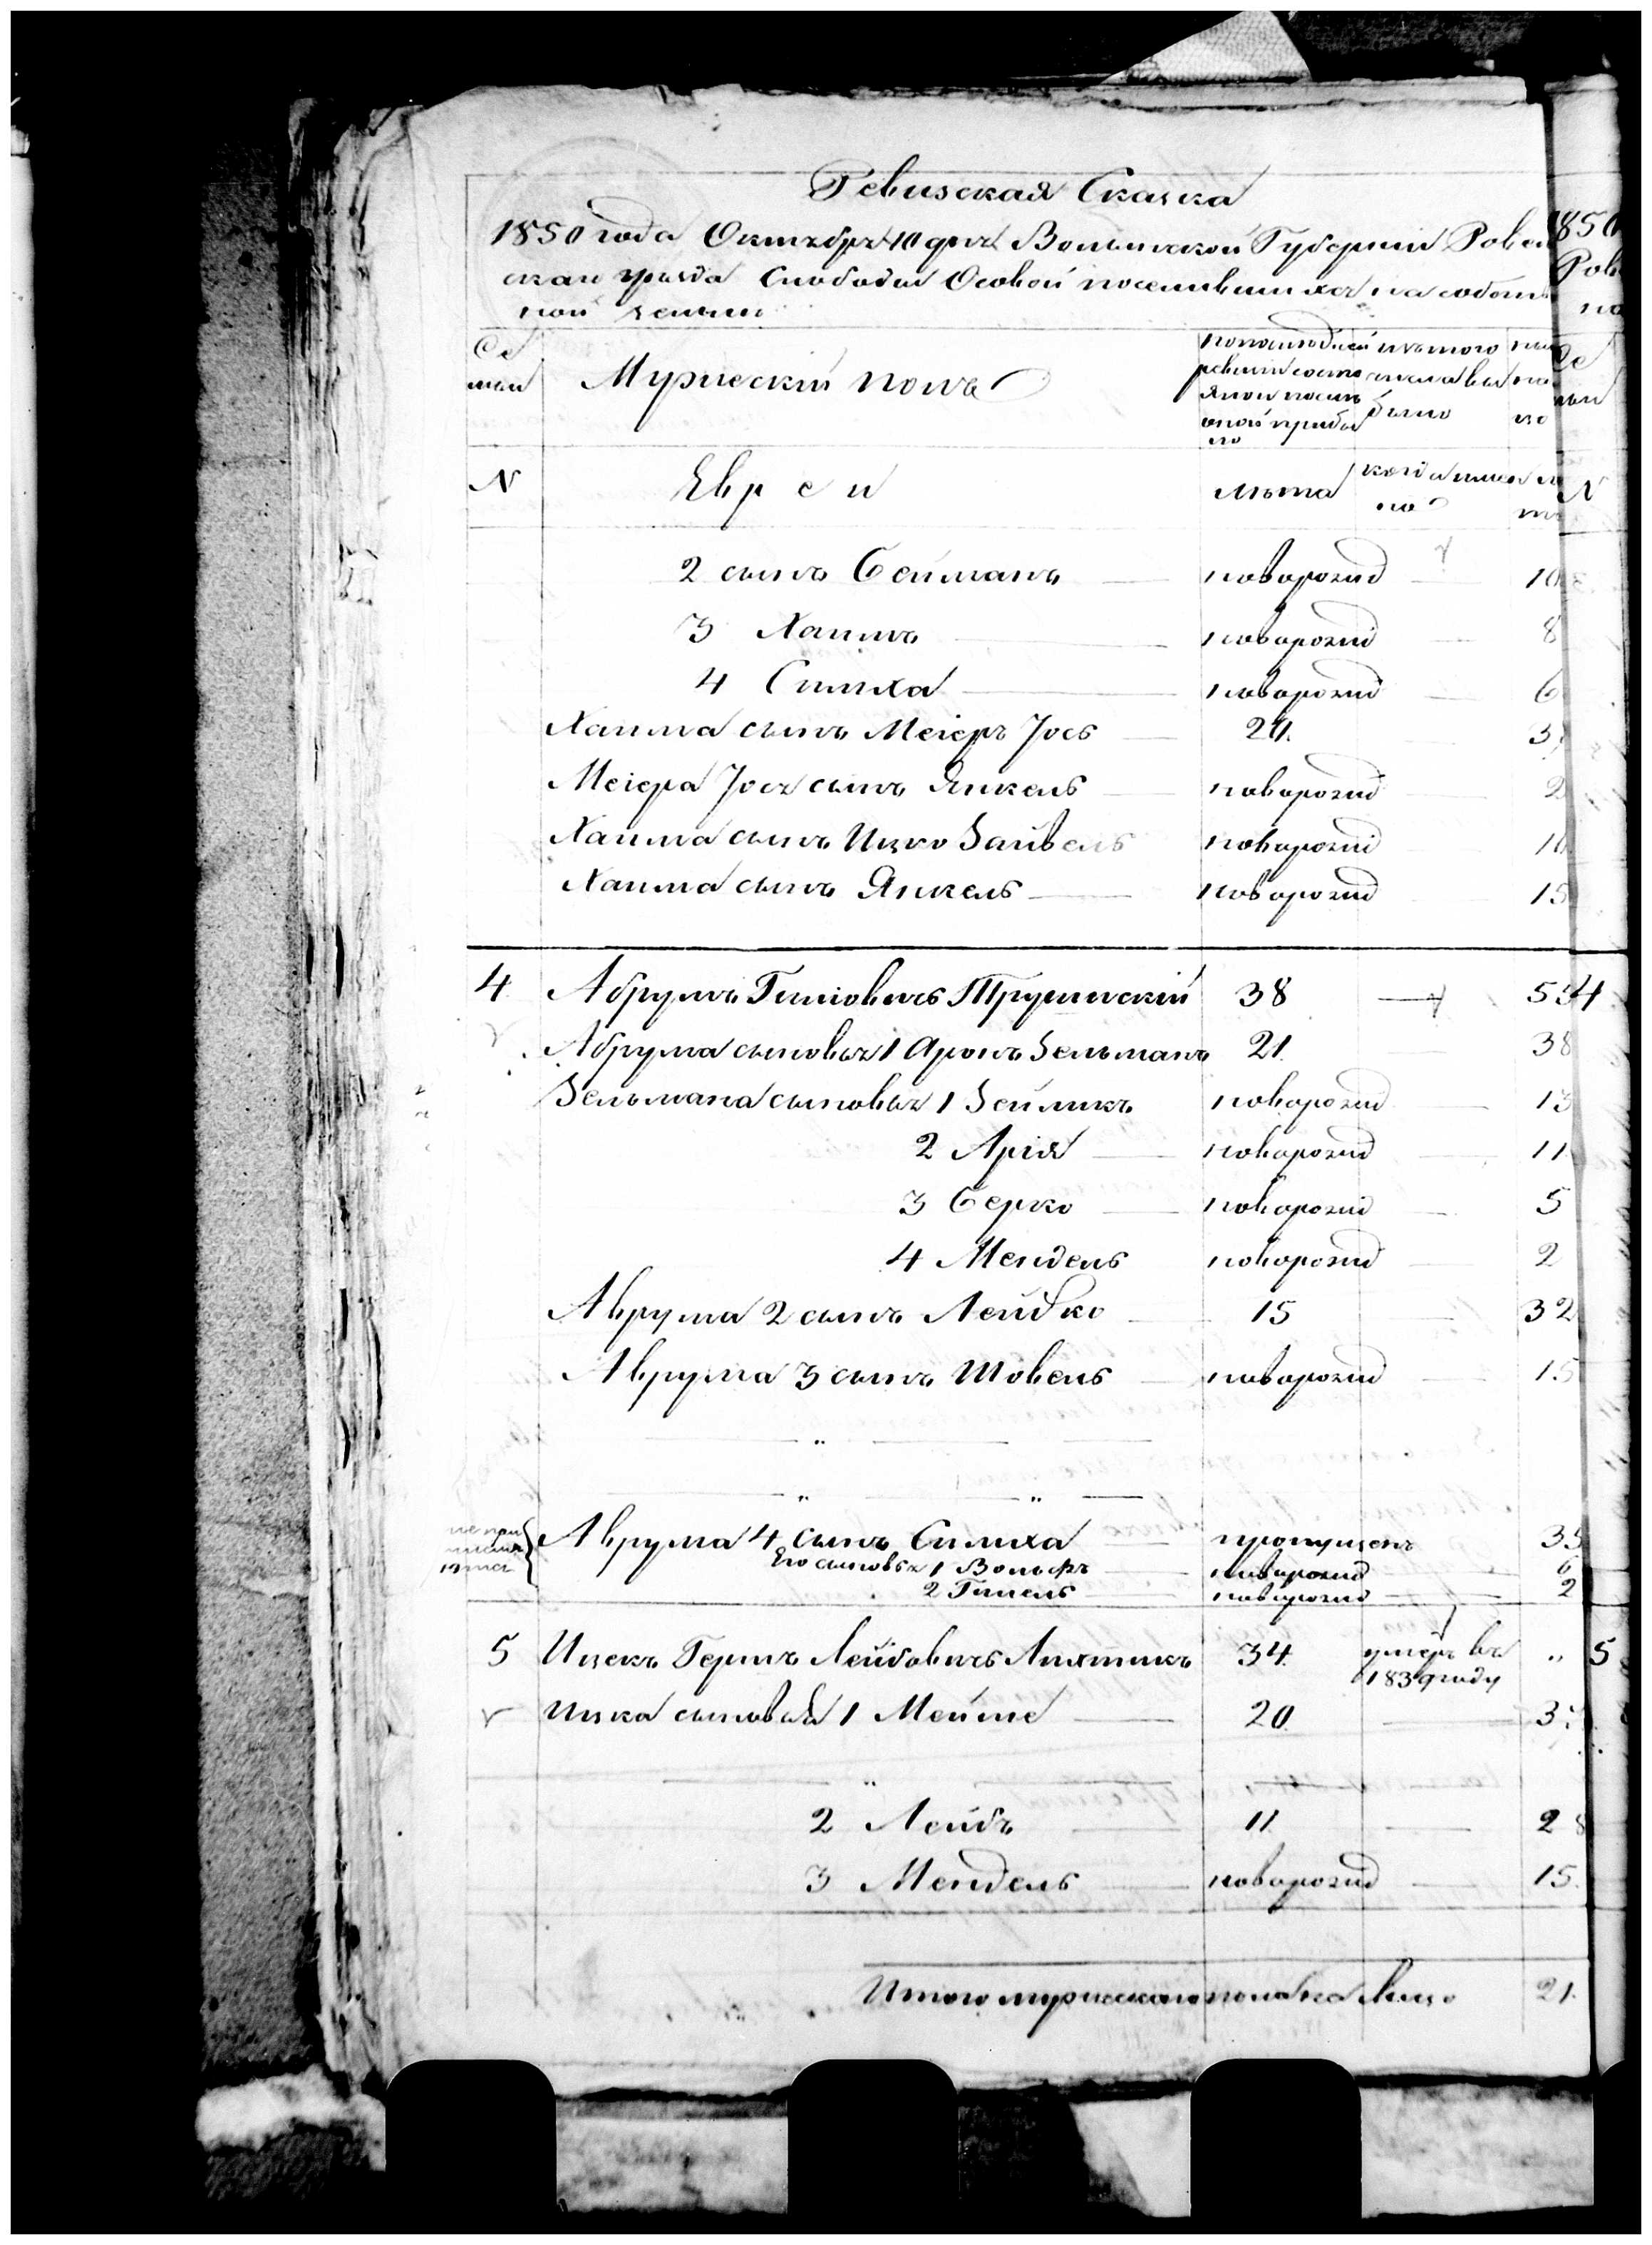 Ревизская Сказка
1850 года Октября 10 дня Волынской Губернии Ровен
скаго уезда Слободы Осовой поселившихся на собствен
ной земли
Се
мьи
Мужескій полъ
по последней
ревизіи состо
яло и после
оной прибы
ло
изъ того
числа вы
было
N
Евреи
лета
когда имен
но
2 сынъ Бейманъ новорожд 10
3 Хаимъ новорожд 8
4 Симха новорожд 6
Хаима сынъ Меіеръ Іось 2
Меіера Іося сынъ Янкель новорожд 2
Хаима сынъ Ицко Зайвель новорожд
Хаима сынъ Янкель новорожд 15
4 Абрумъ Гишовичъ Трушинскій 38 55
Абрума сыновья 1 Аронъ Зельманъ 21 38
Зельмана сыновья 1 Зейликъ новорожд 13
2 Арія новорожд 11
3 Берко новорожд 5
4 Мендель новорожд 2
Аврума 2 сынъ Лейбко 15 32
Аврума 3 сынъ Шовель новорожд 15
Аврума 4 сынъ Симха пропущенъ 35
Его сыновья 1 Вольфъ новорожд 6
2 Гимель новорожд 2
5 Ицекъ Гершъ Лейбовичъ 34 умеръ въ "
1839 году
Ицка сыновья 1 Мейше 20 37
2 Лейбъ 11 28
3 Мендель новорожд 15
Итого мужескаго пола на лицо 21